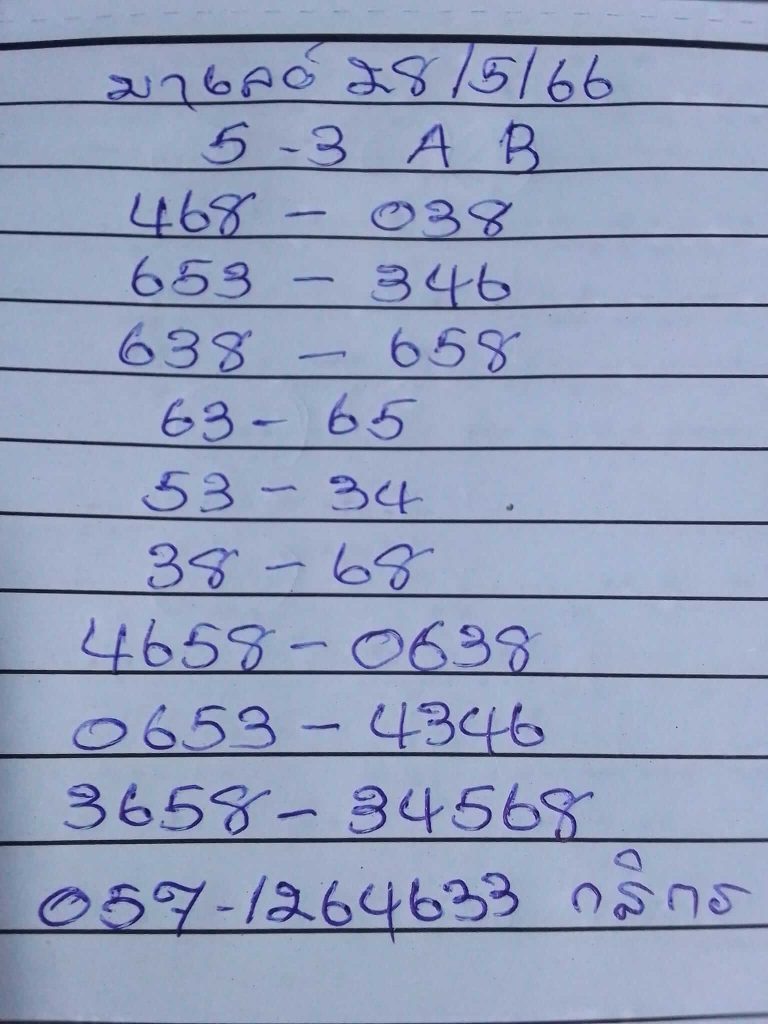 มาเลย์ 28/5/66
5-3 A B
468 - 038
653 - 346
638 - 658
63 - 65
53 - 34
38 - 68
4658 - 0638
0653 - 4346
3658 - 34568
057-1264633 กสิกร